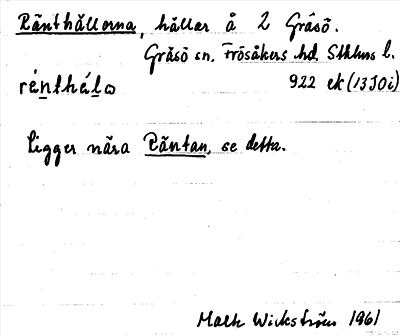 Ränthällorna, hällar å 2 Gräsö.
Gräsö sn, Frösåkers hd, Sthlms l.
922 ek (13J0i)
Ligger nära Räntan, se detta.
Wickström 1961